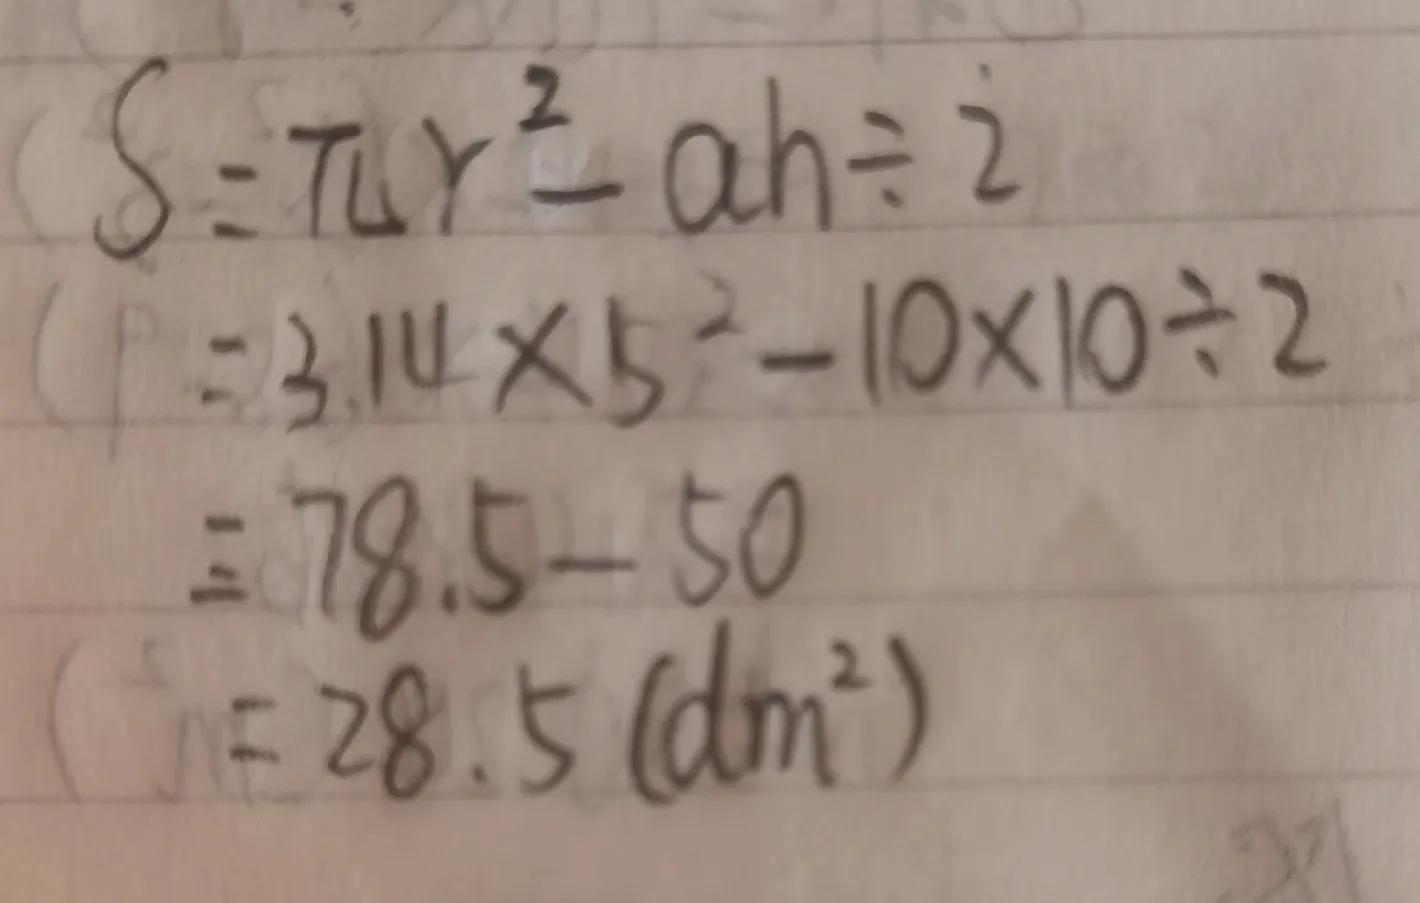 S=πr²-ah÷2
=3.14×5²-10×10÷2
=78.5-50
=28.5(dm²)